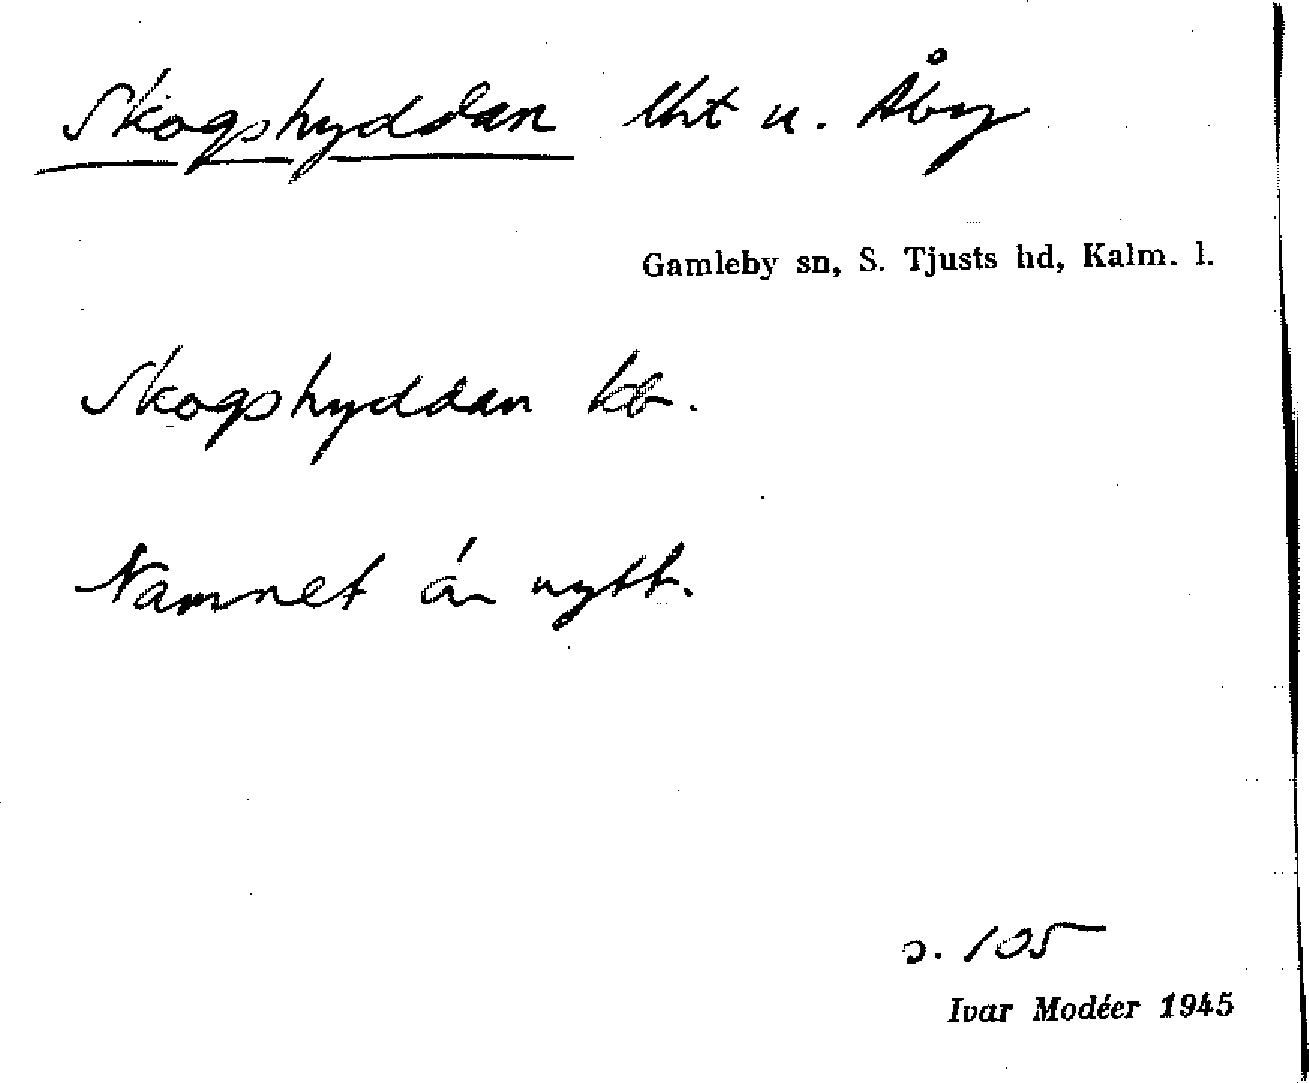 Skogshyddan lht u. Åby
Gamleby sn, S. Tjusts hd, Kalm. l.
Skogshyddan kb.
Namnet är nytt.
s. 105
Ivar Modéer 1945